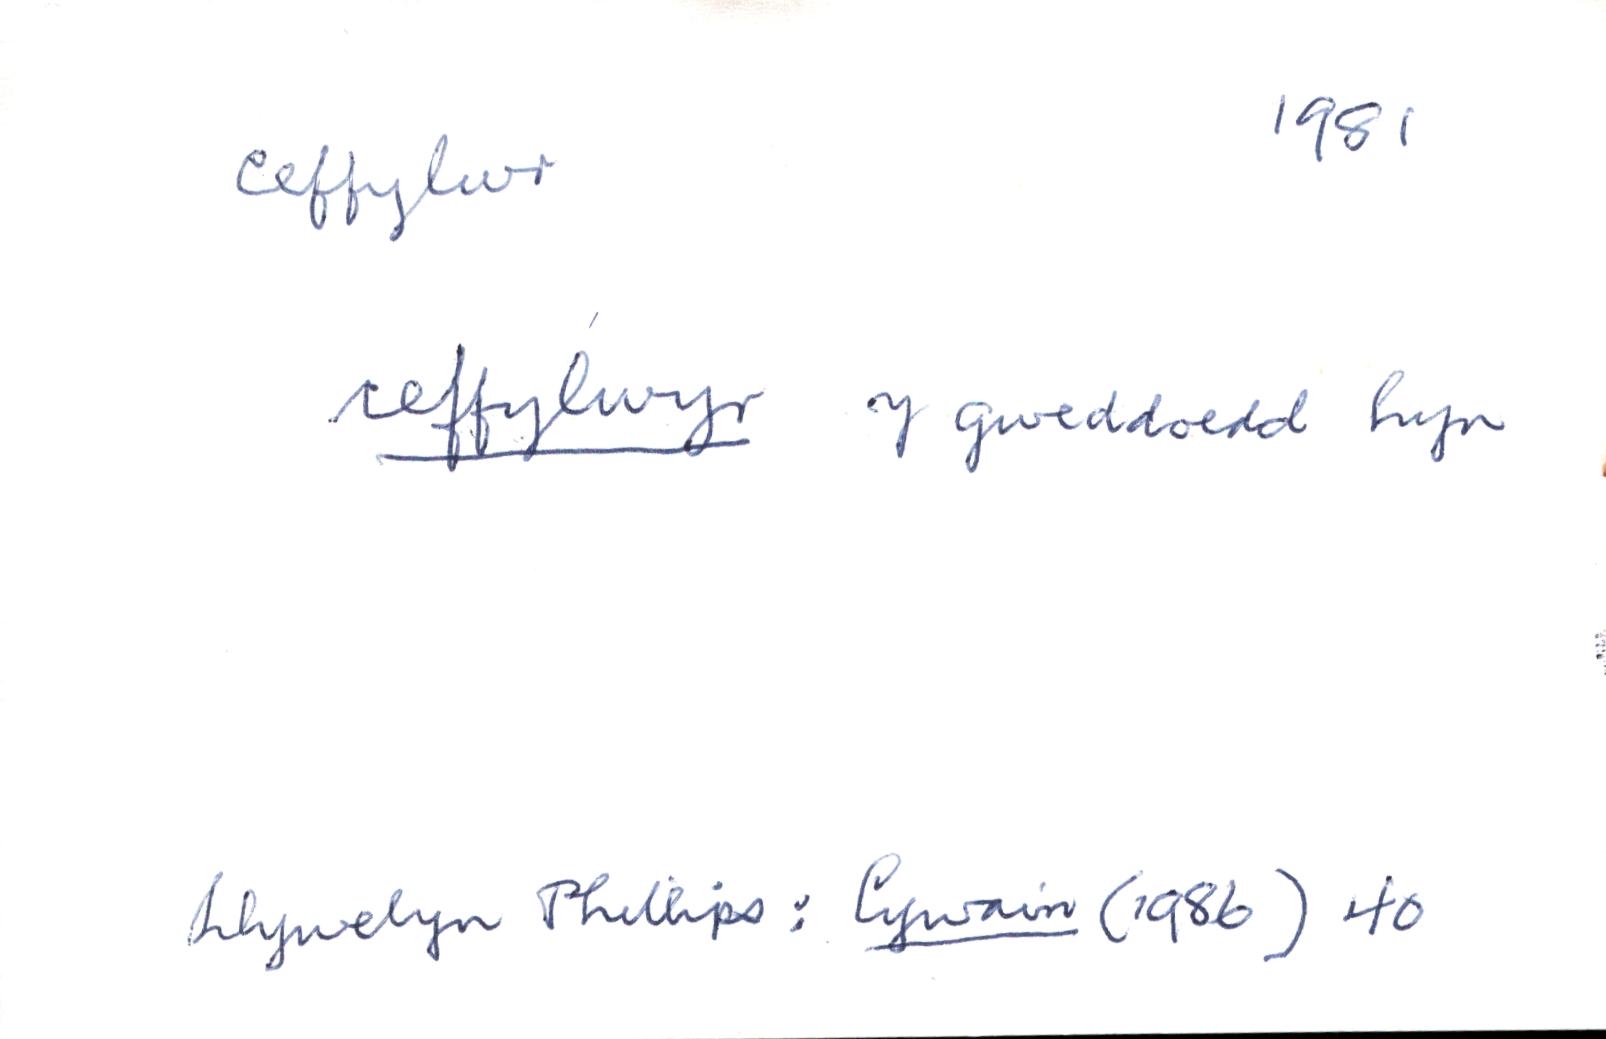 ceffylwr 1981
ceffylwyr y gweddoedd hyn
Llywelyn Phillips : Cywain (1986) 40